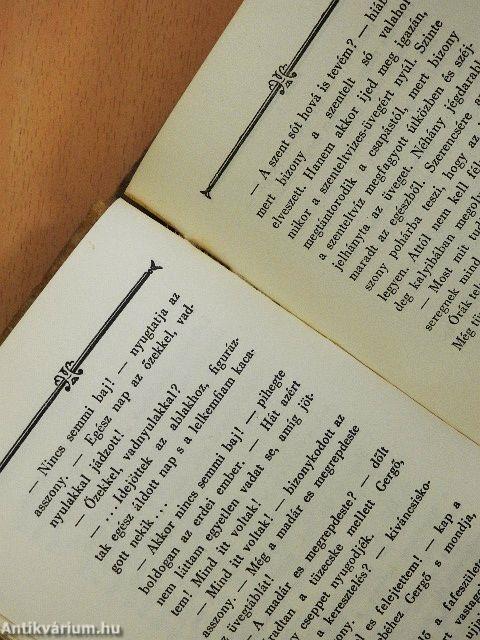 — Nincs semmi baj! — nyugtatja az
asszony. — Egész nap az őzekkel, vad-
nyulakkal játdzott!
— Őzekkel, vadnyulakkal?
— ... Idejöttek az ablakhoz, figuráz-
tak egész áldott nap s a lelkemfiam kaca-
gott nekik ...
— Akkor nincs semmi baj! — pihegte
boldogan az erdei ember. — Hát azért
nem láttam egyetlen vadat se, amíg jöt-
tem! Mind itt voltak!
— Mind itt voltak! — bizonykodott az
asszony. — Még a madár es megrepdeste
az üvegtáblát!
— A madár es megrepdeste? — dőlt
fáradtan a tüzecske mellett Gergő,
cseppet nyugodják.
a keresztelés? — kíváncsisko-
es felejtettem! — kap a
Gergő s mondja,
a fafeszülete
— A szent sót hová is tevém? — hiáb
mert bizony a szentelt só valahol
elveszett. Hanem akkor ijed meg igazán,
mikor a szenteltvizes-üvegért nyúl. Szinte
megtántorodik a csapástól, mert bizony
a szenteltvíz megfagyott útközben és széj-
jelhányta az üveget. Néhány jégdarabk
maradt az egészből. Szerencsére a
szony pohárba teszi, hogy az
legyen. Attól nem kell fél
deg kalyibában megol
— Most mit tud
seregnek mind
Órák tel
Még tü
Antikvárium.hu